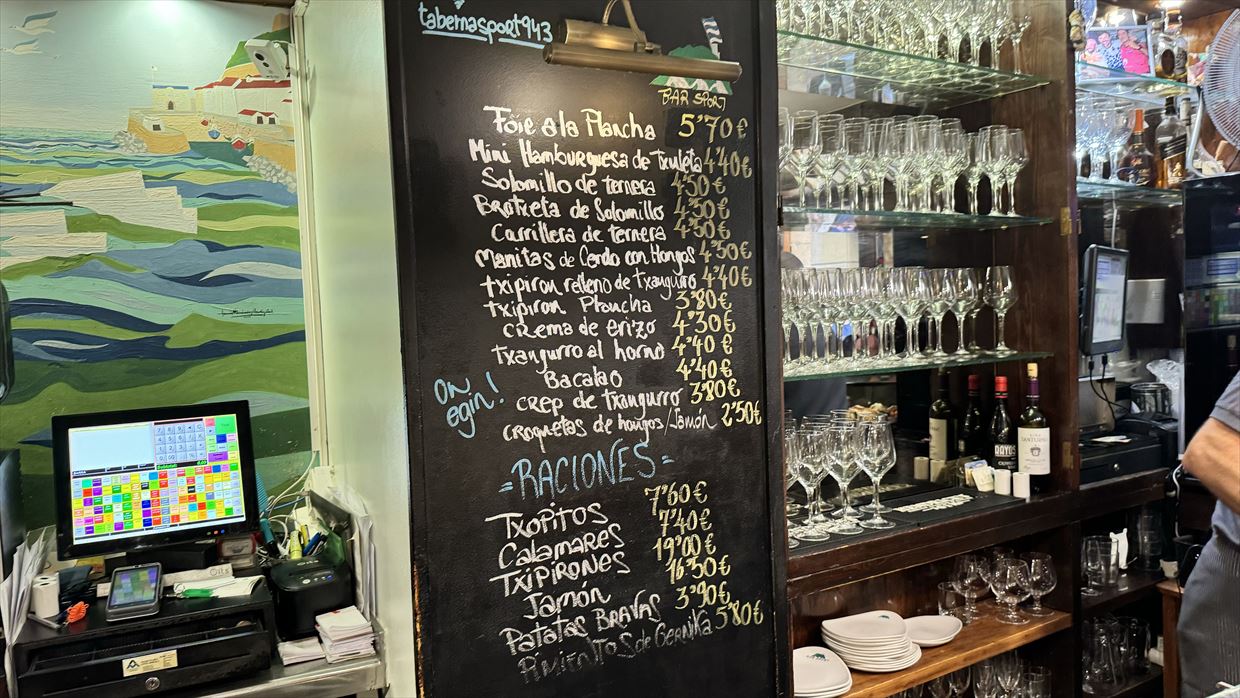 tabernasport943
BAR SPORT
Foie a la Plancha 5'70€
Mini Hamburguesa de txuleta 4'40€
Solomillo de ternera 4'50€
Brotxeta de Solomillo 4'50€
Carrillera de ternera 4'50€
Manitas de Cerdo con Hongos 4'50€
txipiron relleno de txangurro 4'40€
txipiron Plancha 3'80€
crema de erizo 4'30€
txangurro al horno 4'40€
Bacalao 4'40€
crep de txangurro 3'80€
croquetas de hongos/Jamón 2'50€
on egin!
=RACIONES=
Txopitos 7'60€
Calamares 7'40€
Txipirones 19'00€
Jamón 16'50€
Patatas Bravas 3'90€
Pimientos de Gernika 5'80€